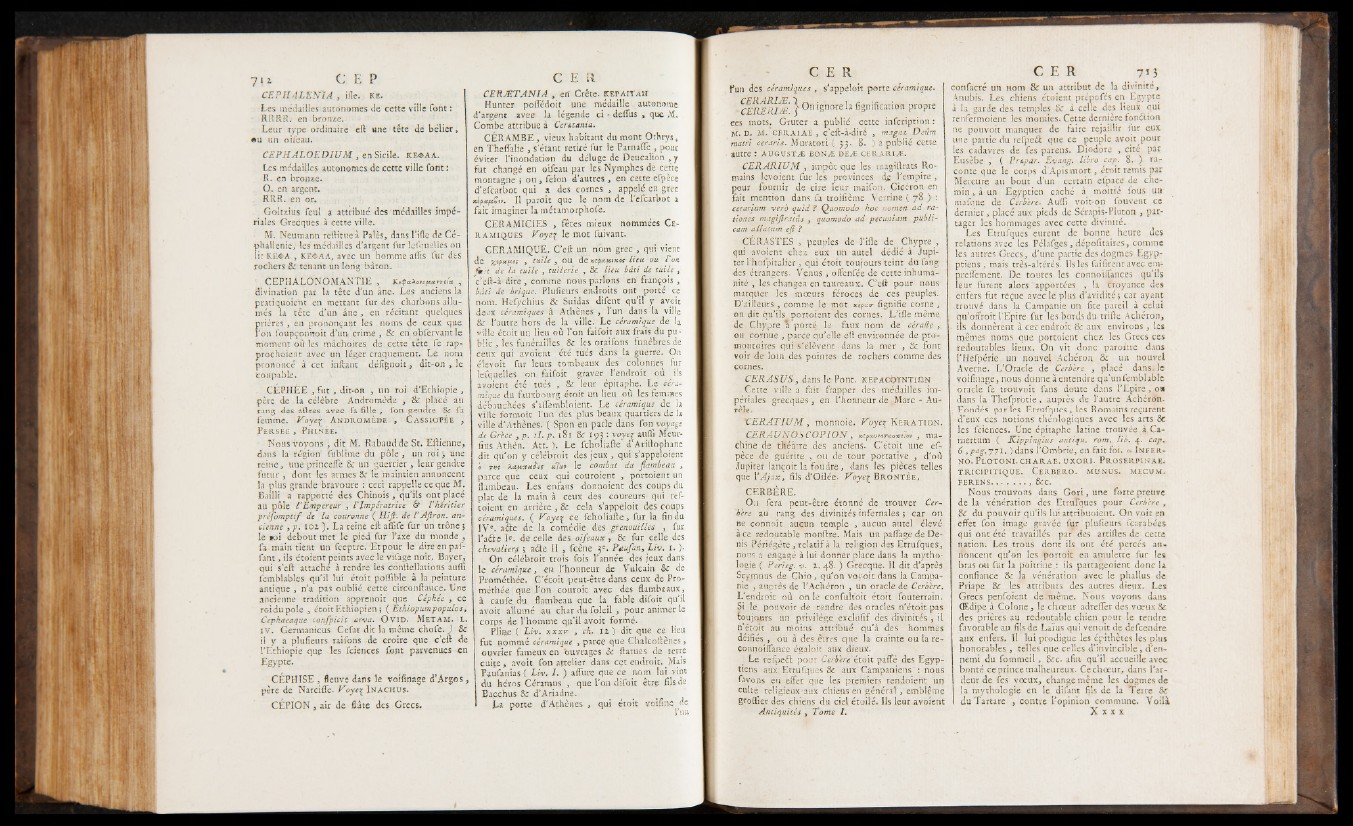 712 C E P
CEPHALENIA, isle. KE.
Les médailles autonomes de cette ville sont :
RRRR. en bronze.
Leur type ordinaire est une tête de bélier,
ou un oiseau.
CEPHALOEDIUM, en Sicile. ΚΕΦΑΛ.
Les médailles autonomes de cette ville sont :
R. en bronze.
O. en argent.
RRR. en or.
Goltzius seul a attribué des médailles impé-
riales Grecques à cette ville.
M. Neumann restitue à Palès, dans l'isle de Cé-
phallenie, les médailles d'argent sur lesquelles on
lit ΚΕΦΑ, ΚΕΦΑΛ, avec un homme assis sur des
rochers & tenant un long bâton.
CEPHALONOMANTIE,
divination par la tête d'un âne. Les anciens la
pratiquoient en mettant sur des charbons allu-
més la tête d'un âne, en récitant quelques
prières, en prononçant les noms de ceux que
l'on soupçonnoit d'un crime, & en observant le
moment où les mâchoires de cette tête se rap-
prochoient avec un léger craquement. Le nom
prononcé à cet instant désignoit, dit-on, le
coupable.
CÉPHÉE, fut, dit-on, un roi d'Ethiopie,
père de la célèbre Andromède, & placé au
rang des astres avec sa fille, son gendre & sa
femme. Voyez ANDROMÈDE, CASSIOPÉE,
PERSÉE, PHINÉE.
Nous voyons, dit M. Rabaud de St. Estienne,
dans la région sublime du pôle, un roi ; une
reine, une princesse & un guerrier, leur gendre
futur, dont les armes & le maintien annoncent
la plus grande bravoure : ceci rappelle ce que M.
Bailli a rapporté des Chinois, qu'ils ont placé
au pôle l'Empereur, l'Impératrice & l'héritier
présomptif de la couronne (Hist. de l'Astron. an-
cienne, p. 102). La reine est assise sur un trône ;
le roi debout met le pied sur l'axe du monde,
sa main tient un sceptre. Et pour le dire en pas-
sant, ils étoient peints avec le visage noir. Bayer,
qui s'est attaché à rendre les constellations aussi
semblables qu'il lui étoit possible à la peinture
antique, n'a pas oublié cette circonstance. Une
ancienne tradition apprenoit que Céphée, ce
roi du pole, étoit Ethiopien ; (Ethiopum populos,
Cephaeaque conspicit arva. OVID. METAM. L.
IV. Germanicus Cesar dit la même chose.) &
il y a plusieurs raisons de croire que c'est de
l'Ethiopie que les sciences sont parvenues en
Egypte.
CÉPHISE, fleuve dans le voisinage d'Argos,
père de Narcisse. Voyez INACHUS.
CÉPION, air de flûte des Grecs.
C E R
CERÆTANIA, en Crète.
Hunter possédoit une médaille autonome
d'argent avec la légende ci-dessus, que M.
Combe attribue à Ceretania.
CÉRAMBE, vieux habitant du mont Othrys,
en Thessalie, s'étant retiré sur le Parnasse, pour
éviter l'inondation du déluge de Deucalion, y
fut changé en oiseau par les Nymphes de cette
montagne ; ou, selon d'autres, en cette espèce
d'escarbot qui a des cornes, appelé en grec
Il paroît que le nom de l'escarbot a
fait imaginer la métamorphose.
CERAMICIES, fêtes mieux nommées CE-
RAMIQUES Voyez le mot suivant.
CERAMIQUE. C'est un nom grec, qui vient
de κεραμος, tuile, ou de κεραμικος lieu où l'on
fait de la tuile, tuilerie, & lieu bâti de tuile,
c'est-à dire, comme nous parlons en françois,
bâti de brique. Plusieurs endroits ont porté ce
nom. Hesychius & Suidas disent qu'il y avoit
deux céramiques à Athènes, l'un dans la ville
& l'autre hors de la ville. Le céramique de la
ville étoit un lieu où l'on faisoit aux frais du pu-
blic, les funérailles & les oraisons funèbres de
ceux qui avoient été tués dans la guerre. On
élevoit sur leurs tombeaux des colonnes sur
lesquelles on faisoit graver l'endroit où ils
avoient été tués, & leur épitaphe. Le céra-
mique du fauxbourg étoit un lieu où les femmes
débauchées s'assembloient. Le céramique de la
ville formoit l'un des plus beaux quartiers de la
ville d'Athènes. (Spon en parle dans son voyage
de Grèce, p. II. p. 181 & 193 : voyez aussi Meur-
sius Athén. Att.). Le scholiaste d'Aristophane
dit qu'on y célébroit des jeux, qui s'appeloient
le combat du flambeau,
parce que ceux qui couroient, portoient un
flambeau. Les enfans donnoient des coups du
plat de la main à ceux des coureurs qui res-
toient en arrière, & cela s'appeloit des coups
céramiques. (Voyez ce scholiaste, sur la fin du
IVe. acte de la comédie des grenouilles, sur
l'acte Ie. de celle des oiseaux, & sur celle des
chevaliers ; acte II, scène 3e. Pausan, Liv. 1.).
On célébroit trois fois l'année des jeux dans
le céramique, en l'honneur de Vulcain & de
Prométhée. C'étoit peut-être dans ceux de Pro-
méthée que l'on couroit avec des flambeaux,
à cause du flambeau que la fable disoit qu'il
avoit allumé au char du soleil, pour animer le
corps de l'homme qu'il avoit formé.
Pline (Liv. xxxv, ch. 12) dit que ce lieu
fut nommé céramique, parce que Chalcosthènes,
ouvrier fameux en ouvrages & statues de terre
cuite, avoit son attelier dans cet endroit. Mais
Pausanias (Liv. I.) assure que ce nom lui vint
du héros Céramus, que l'on disoit être fils de
Bacchus & d'Ariadne.
La porte d'Athènes, qui étoit voisine de
l'un
C E R
l'un des céramiques, s'appeloit porte céramique.
CERARIÆ. } On ignore la signification propre
CERERIÆ. }
ces mots. Gruter a publié cette inscription :
M. D. M. CERAIAE, c'est-à-dire, magnæ Deûm
matri ceraria. Muratori (33. 8.) a publié cette
autre : AUGUSTÆ BONÆ DEÆ CERARIÆ.
CERARIUM, impôt que les magistrats Ro-
mains levoient sur les provinces de l'empire,
pour fournir de cire leur maison. Cicéron en
fait mention dans sa troisième Verrine (78) :
cerarium vero quid ? Quomodo hoc nomen ad ra-
tiones magistratûs, quomodo ad pecuniam publi-
cam allatum est ?
CÉRASTES, peuples de l'isle de Chypre,
qui avoient chez eux un autel dédié à Jupi-
ter l'hospitalier, qui étoit toujours teint du sang
des étrangers. Venus, offensée de cette inhuma-
nité, les changea en taureaux. C'est pour nous
marquer les mœurs féroces de ces peuples.
D'ailleurs, comme le mot κερας signifie corne,
on dit qu'ils portoient des cornes. L'isle même
de Chypre a porté le faux nom de céraste,
ou cornue, parce qu'elle est environnée de pro-
montoires qui s'élèvent dans la mer, & font
voir de loin des pointes de rochers comme des
cornes.
CERASUS, dans le Pont.
Cette ville a fait frapper des médailles im-
périales grecques, en l'honneur de Marc-Au-
rèle.
CERATIUM, monnoie. Voyez KERATION.
CERAUNOSCOPION, ma-
chine de théâtre des anciens. C'étoit une es-
pèce de guérite, ou de tour portative, d'où
Jupiter lançoit la foudre, dans les pièces telles
que l'Ajax, fils d'Oïlée. Voyez BRONTÉE.
CERBÈRE.
On sera peut-être étonné de trouver Cer-
bère au rang des divinités infernales ; car on
ne connoit aucun temple, aucun autel élevé
à ce redoutable monstre. Mais un passage de De-
nis Périégète, relatif à la religion des Etrusques,
nous a engagé à lui donner place dans la mytho-
logie (Perieg. v. 2. 48.) Grecque. Il dit d'après
Scymnus de Chio, qu'on voyoit dans la Campa-
nie, auprès de l'Achéron, un oracle de Cerbère.
L'endroit où on le consultoit étoit souterrain.
Si le pouvoir de rendre des oracles n'étoit pas
toujours un privilége exclusif des divinités, il
n'étoit au moins attribué qu'à des hommes
déifiés, ou à des êtres que la crainte ou la re-
connoissance égaloit aux dieux.
Le respect pour Cerbère étoit passé des Egyp-
tiens aux Etrusques & aux Campaniens : nous
savons en effet que les premiers rendoient un
culte religieux aux chiens en général, emblème
grossier des chiens du ciel étoilé. Ils leur avoient
Antiquités, Tome I.
C E R 713
consacré un nom & un attribut de la divinité,
Anubis. Les chiens étoient préposés en Egypte
à la garde des temples & à celle des lieux qui
renfermoient les momies. Cette dernière fonction
ne pouvoit manquer de faire rejaillir sur eux
une partie du respect que ce peuple avoit pour
les cadavres de ses parens. Diodore, cité par
Eusèbe, (Præpar. Evang. libro cap. 8.) ra-
conte que le corps d'Apis mort, étoit remis par
Mercure au bout d'un certain espace de che-
min, à un Egyptien caché à moitié sous un
masque de Cerbère. Aussi voit-on souvent ce
dernier, placé aux pieds de Sérapis-Pluton, par-
tager les hommages avec cette divinité.
Les Etrusques eurent de bonne heure des
relations avec les Pélasges, dépositaires, comme
les autres Grecs, d'une partie des dogmes Egyp-
ptiens, mais très-altérés. Ils les saisirent avec em-
pressement. De toutes les connoissances qu'ils
leur furent alors apportées, la croyance des
enfers fut reçue avec le plus d'avidité ; car ayant
trouvé dans la Campanie un site pareil à celui
qu'offroit l'Epire sur les bords du triste Achéron,
ils donnèrent à cet endroit & aux environs, les
mêmes noms que portoient chez les Grecs ces
redoutables lieux. On vit donc paroitre dans
l'Hespérie un nouvel Achéron & un nouvel
Averne. L'Oracle de Cerbère, placé dans le
voisinage, nous donne à entendre qu'un semblable
oracle se trouvoit sans doute dans l'Epire, ou
dans la Thesprotie, auprès de l'autre Achéron.
Fondés par les Etrusques, les Romains reçurent
d'eux ces notions théologiques avec les arts &
les sciences. Une épitaphe latine trouvée à Ca-
mettum (Kippingius antiqu. rom. lib. 4. cap.
6, pag. 771.) dans l'Ombrie, en fait foi. « INFER-
NO. PLOTONI. CHARAE. UXORI. PROSERPINAE.
TRICIPITIQUE. CERBERO. MUNUS. MECUM.
FERENS........, &c.
Nous trouvons dans Gori, une forte preuve
de la vénération des Etrusques pour Cerbère,
& du pouvoir qu'ils lui attribuoient. On voit en
effet son image gravée sur plusieurs scarabées
qui ont été travaillés par des artistes de cette
nation. Les trous dont ils ont été percés an-
noncent qu'on les portoit en amulette sur les
bras ou sur la poitrine : ils partageoient donc la
confiance & la vénération avec le phallus de
Priape & les attributs des autres dieux. Les
Grecs pensoient de même. Nous voyons dans
Œdipe à Colone, le chœur adresser des vœux &
des prières au redoutable chien pour le rendre
favorable au fils de Laïus qui venoit de descendre
aux enfers. Il lui prodigue les épithètes les plus
honorables, telles que celles d'invincible, d'en-
nemi du sommeil, &c. afin qu'il accueille avec
bonté ce prince malheureux. Ce chœur, dans l'ar-
deur de ses vœux, change même les dogmes de
la mythologie en le disant fils de la Terre &
du Tartare, contre l'opinion commune. Voilà
X x x x